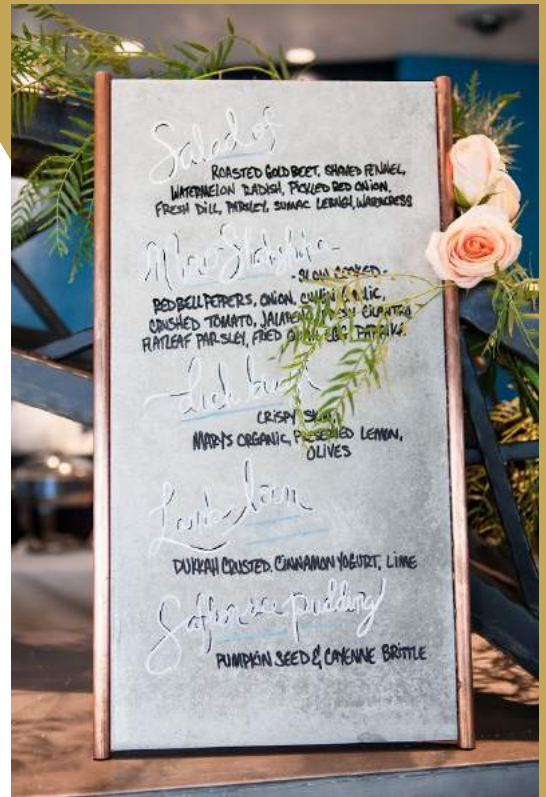 Salad of
ROASTED GOLD BEET, SHAVED FENNEL,
WATERMELON RADISH, PICKLED RED ONION,
FRESH DILL, PARSLEY, SUMAC WATERCRESS
Shakshuka
- SLOW COOKED -
RED BELL PEPPERS, ONION, CUMIN GARLIC,
CRUSHED TOMATO, JALAPENO, FRESH CILANTRO
FLATLEAF PARSLEY, FRIED EGG, PAPRIKA
CRISPY SKIN,
MARY'S ORGANIC, PRESERVED LEMON,
OLIVES
Lamb loin
DUKKAH CRUSTED, CINNAMON YOGURT, LIME
pudding
PUMPKIN SEED & CAYENNE BRITTLE